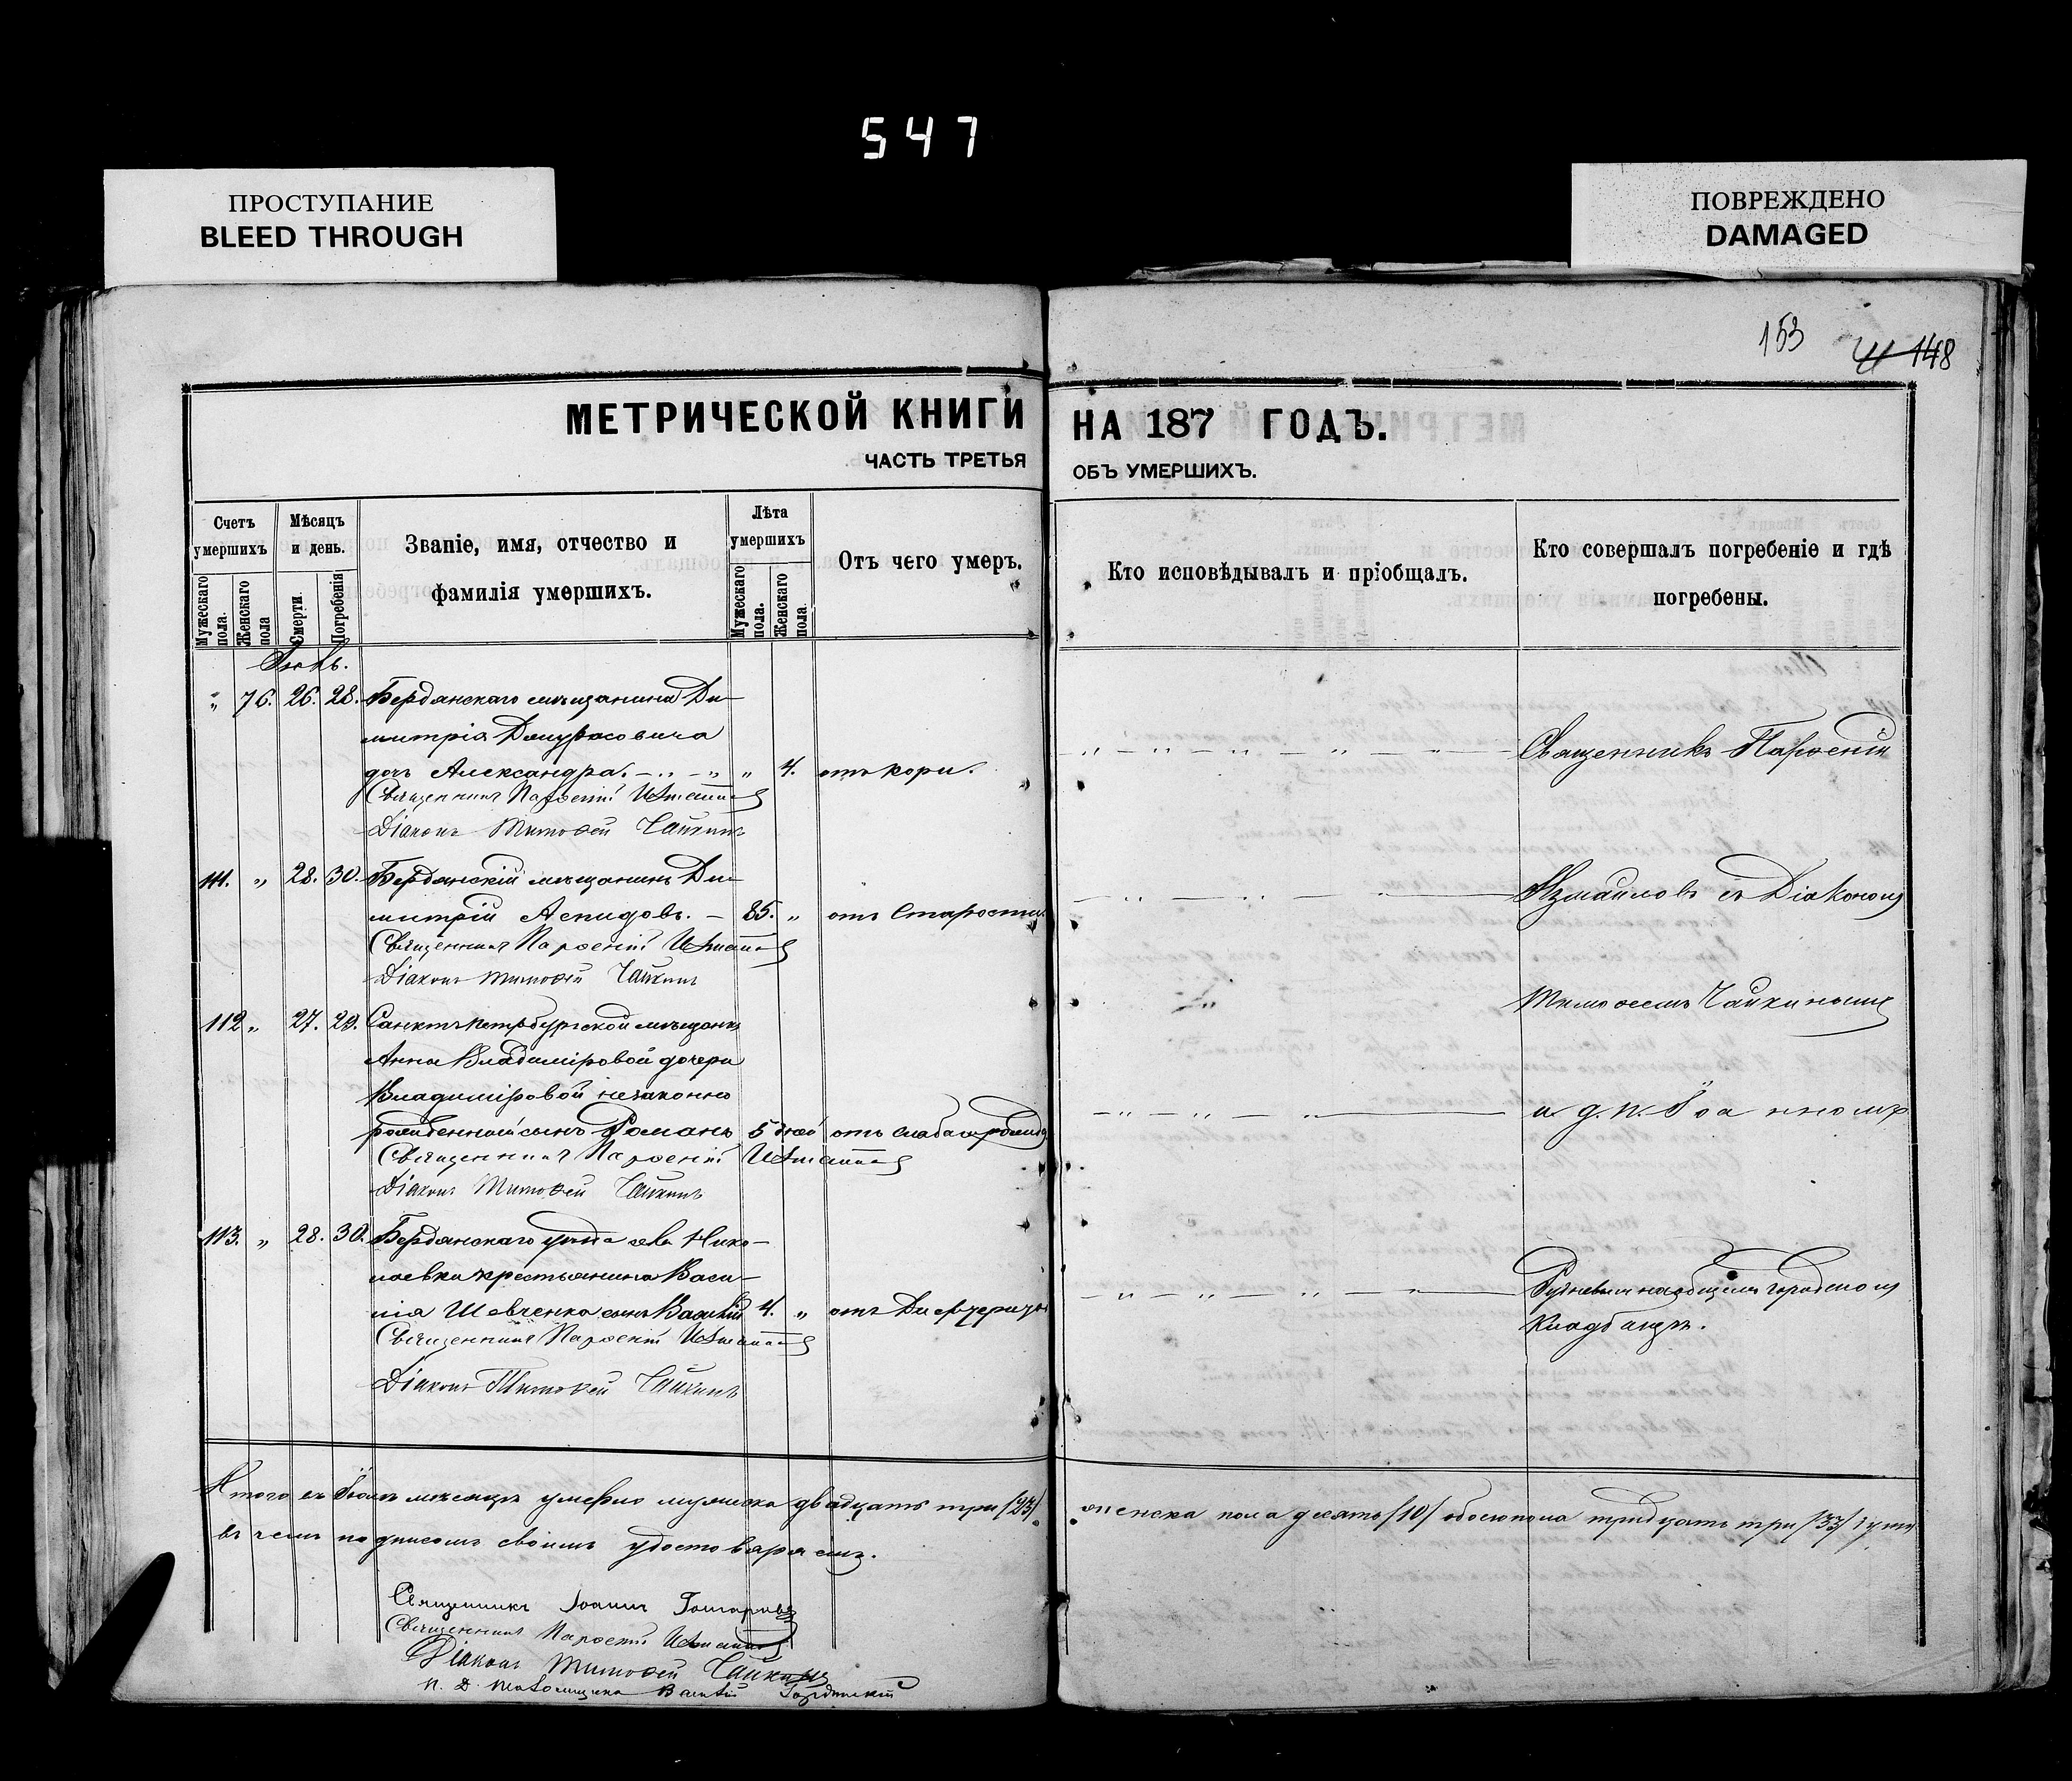 547
ПРОСТУПАНИЕ
BLEED THROUGH
ПОВРЕЖДЕНО
DAMAGED
153
148
МЕТРИЧЕСКОЙ КНИГИ
ЧАСТЬ ТРЕТЬЯ
НА 187 ГОДЪ.
ОБЪ УМЕРШИХЪ.
Счетъ умершихъ
Мужескаго пола.
Женскаго пола
Мѣсяцъ и день.
Смерти
Погребенія
Званіе, имя, отчество и
фамилія умершихъ.
Лѣта умершихъ
Мужескаго пола.
Женскаго пола.
Отъ чего умеръ.
Кто исповѣдывалъ и пріобщалъ.
Кто совершалъ погребеніе и гдѣ
погребены.
„ 76. 26. 28. Бердянскаго мѣщанина Ди-
митрія
дочь Александра. „ 4. отъ кори.
Священникъ Парѳеній Измаиловъ
Діаконъ Тимоѳей Чайкинъ
Священникъ Парѳеній
111. „ 28. 30. Бердянскій мѣщанинъ Ди-
митрій Аспидовъ. - 85. „ отъ Старости.
Священникъ Парѳеній Измаиловъ
Діаконъ Тимоѳей Чайкинъ
Измаиловъ съ Діакономъ
Тимоѳеемъ Чайкинымъ
112 „ 27. 29. Санктпетербургской мѣщанки
Анны Владиміровой дочери
Владиміровой незаконно
рожденный сынъ Романъ 5 дней отъ
Священникъ Парѳеній Измаиловъ
Діаконъ Тимоѳей Чайкинъ
113. „ 28. 30. Бердянскаго уѣзда села Нико-
лаевки крестьянина Васи-
лія Шевченка сынъ Василій 4. „ отъ Дифтерита
Священникъ Парѳеній Измаиловъ
Діаконъ Тимоѳей Чайкинъ
на общемъ городскомъ
Кладбищѣ.
Итого въ мѣсяцѣ умерло мужеска двадцать три /23/.
женска пола десять /10/ обоего пола тридцать три /33/
въ чемъ подписомъ своимъ удостоваряемъ.
Священникъ Іоаннъ
Священникъ Парѳеній Измаиловъ
Діаконъ Тимоѳей Чайкинъ